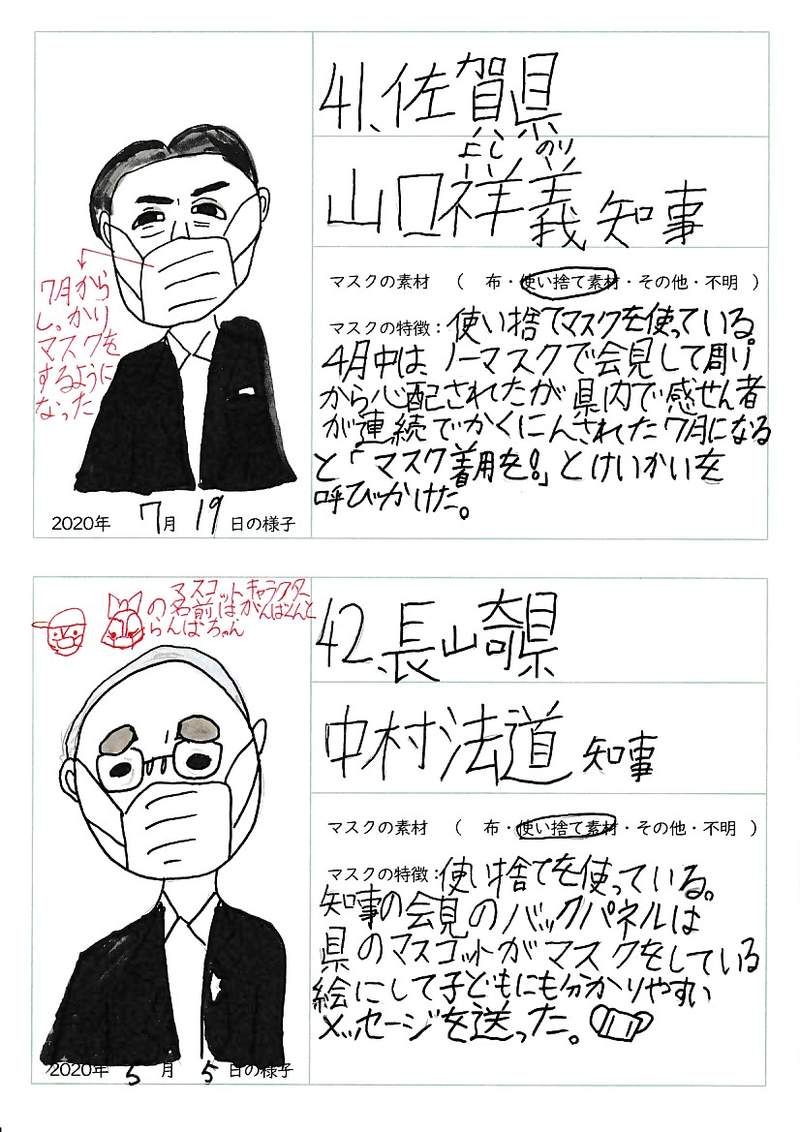 41、佐賀県
よし のり
山口祥義 知事
マスクの素材 ( 布・使い捨て素材・その他・不明 )
マスクの特徴：使い捨てマスクを使っている。
4月中は ノーマスクで会見して周り
から心配されたが県内で感せん者
が連続でかくにんされた7月になる
と「マスク着用を!」とけいかいを
呼びかけた。
7月から
しっかり
マスクを
するように
なった
2020年 7月 19日の様子
マスコットキャラクター
の名前はがんばくんと
らんばちゃん
42、長崎県
中村法道 知事
マスクの素材 ( 布・使い捨て素材・その他・不明 )
マスクの特徴：使い捨てを使っている。
知事の会見のバックパネルは
県のマスコットがマスクをしている
絵にして子どもにも分かりやすい
メッセージを送った。
2020年 5月 5日の様子